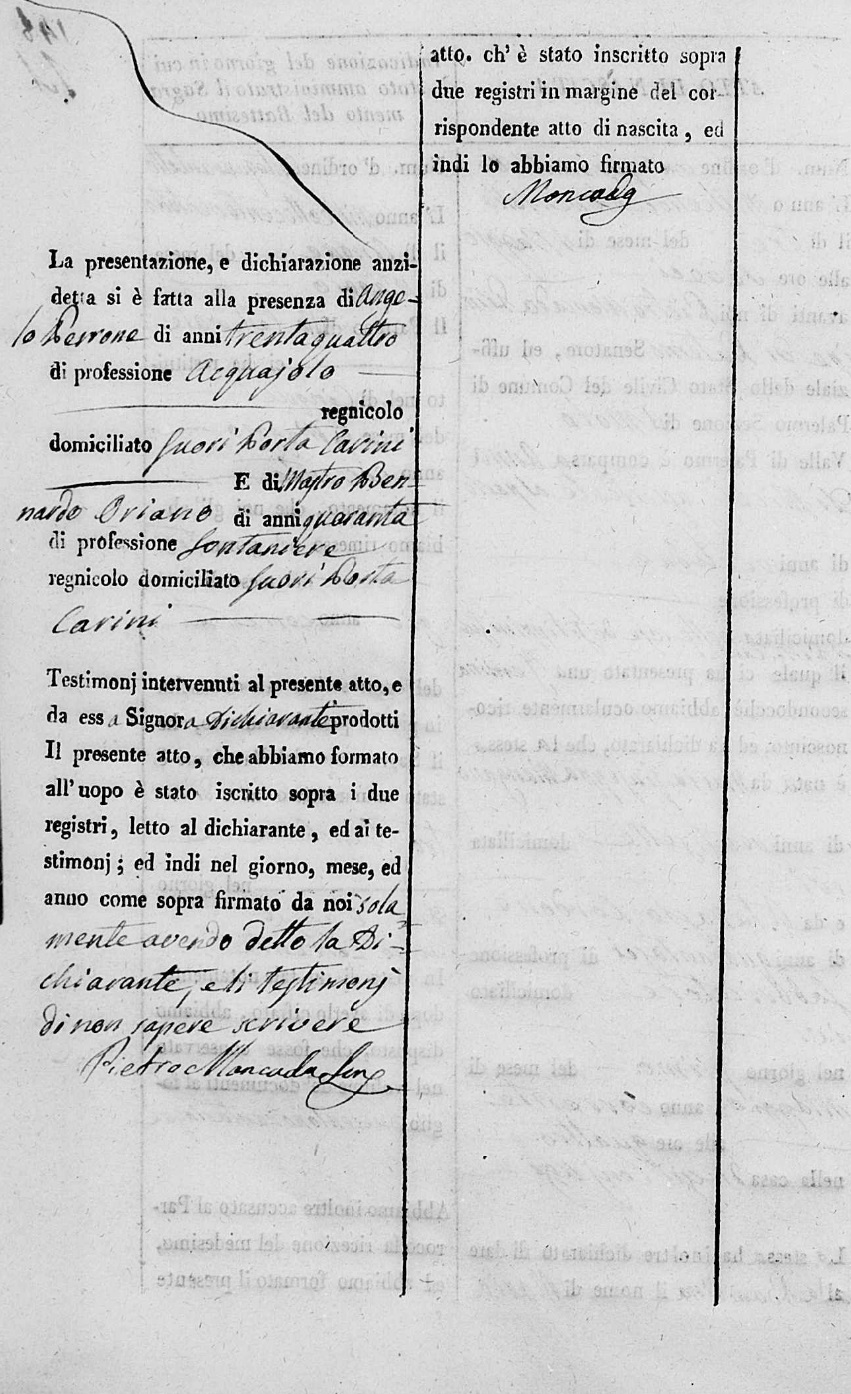 La presentazione, e dichiarazione anzi-
detta si è fatta alla presenza di Ange-
lo Perrone di anni trentaquattro
di professione Acquajolo
regnicolo
domiciliato fuori Porta Carini
E di Mastro Ber-
nardo Oriano di anni quaranta
di professione fontaniere
regnicolo domiciliato fuori Porta
Carini
Testimonj intervenuti al presente atto, e
da essa Signora dichiarante prodotti
Il presente atto, che abbiamo formato
all'uopo è stato iscritto sopra i due
registri, letto al dichiarante, ed ai te-
stimonj; ed indi nel giorno, mese, ed
anno come sopra firmato da noi sola
mente avendo detto la Di-
chiarante, e li testimonj
di non sapere scrivere
Pietro Moncada Sen
atto. ch' è stato inscritto sopra
due registri in margine del cor-
rispondente atto di nascita, ed
indi lo abbiamo firmato
Moncada